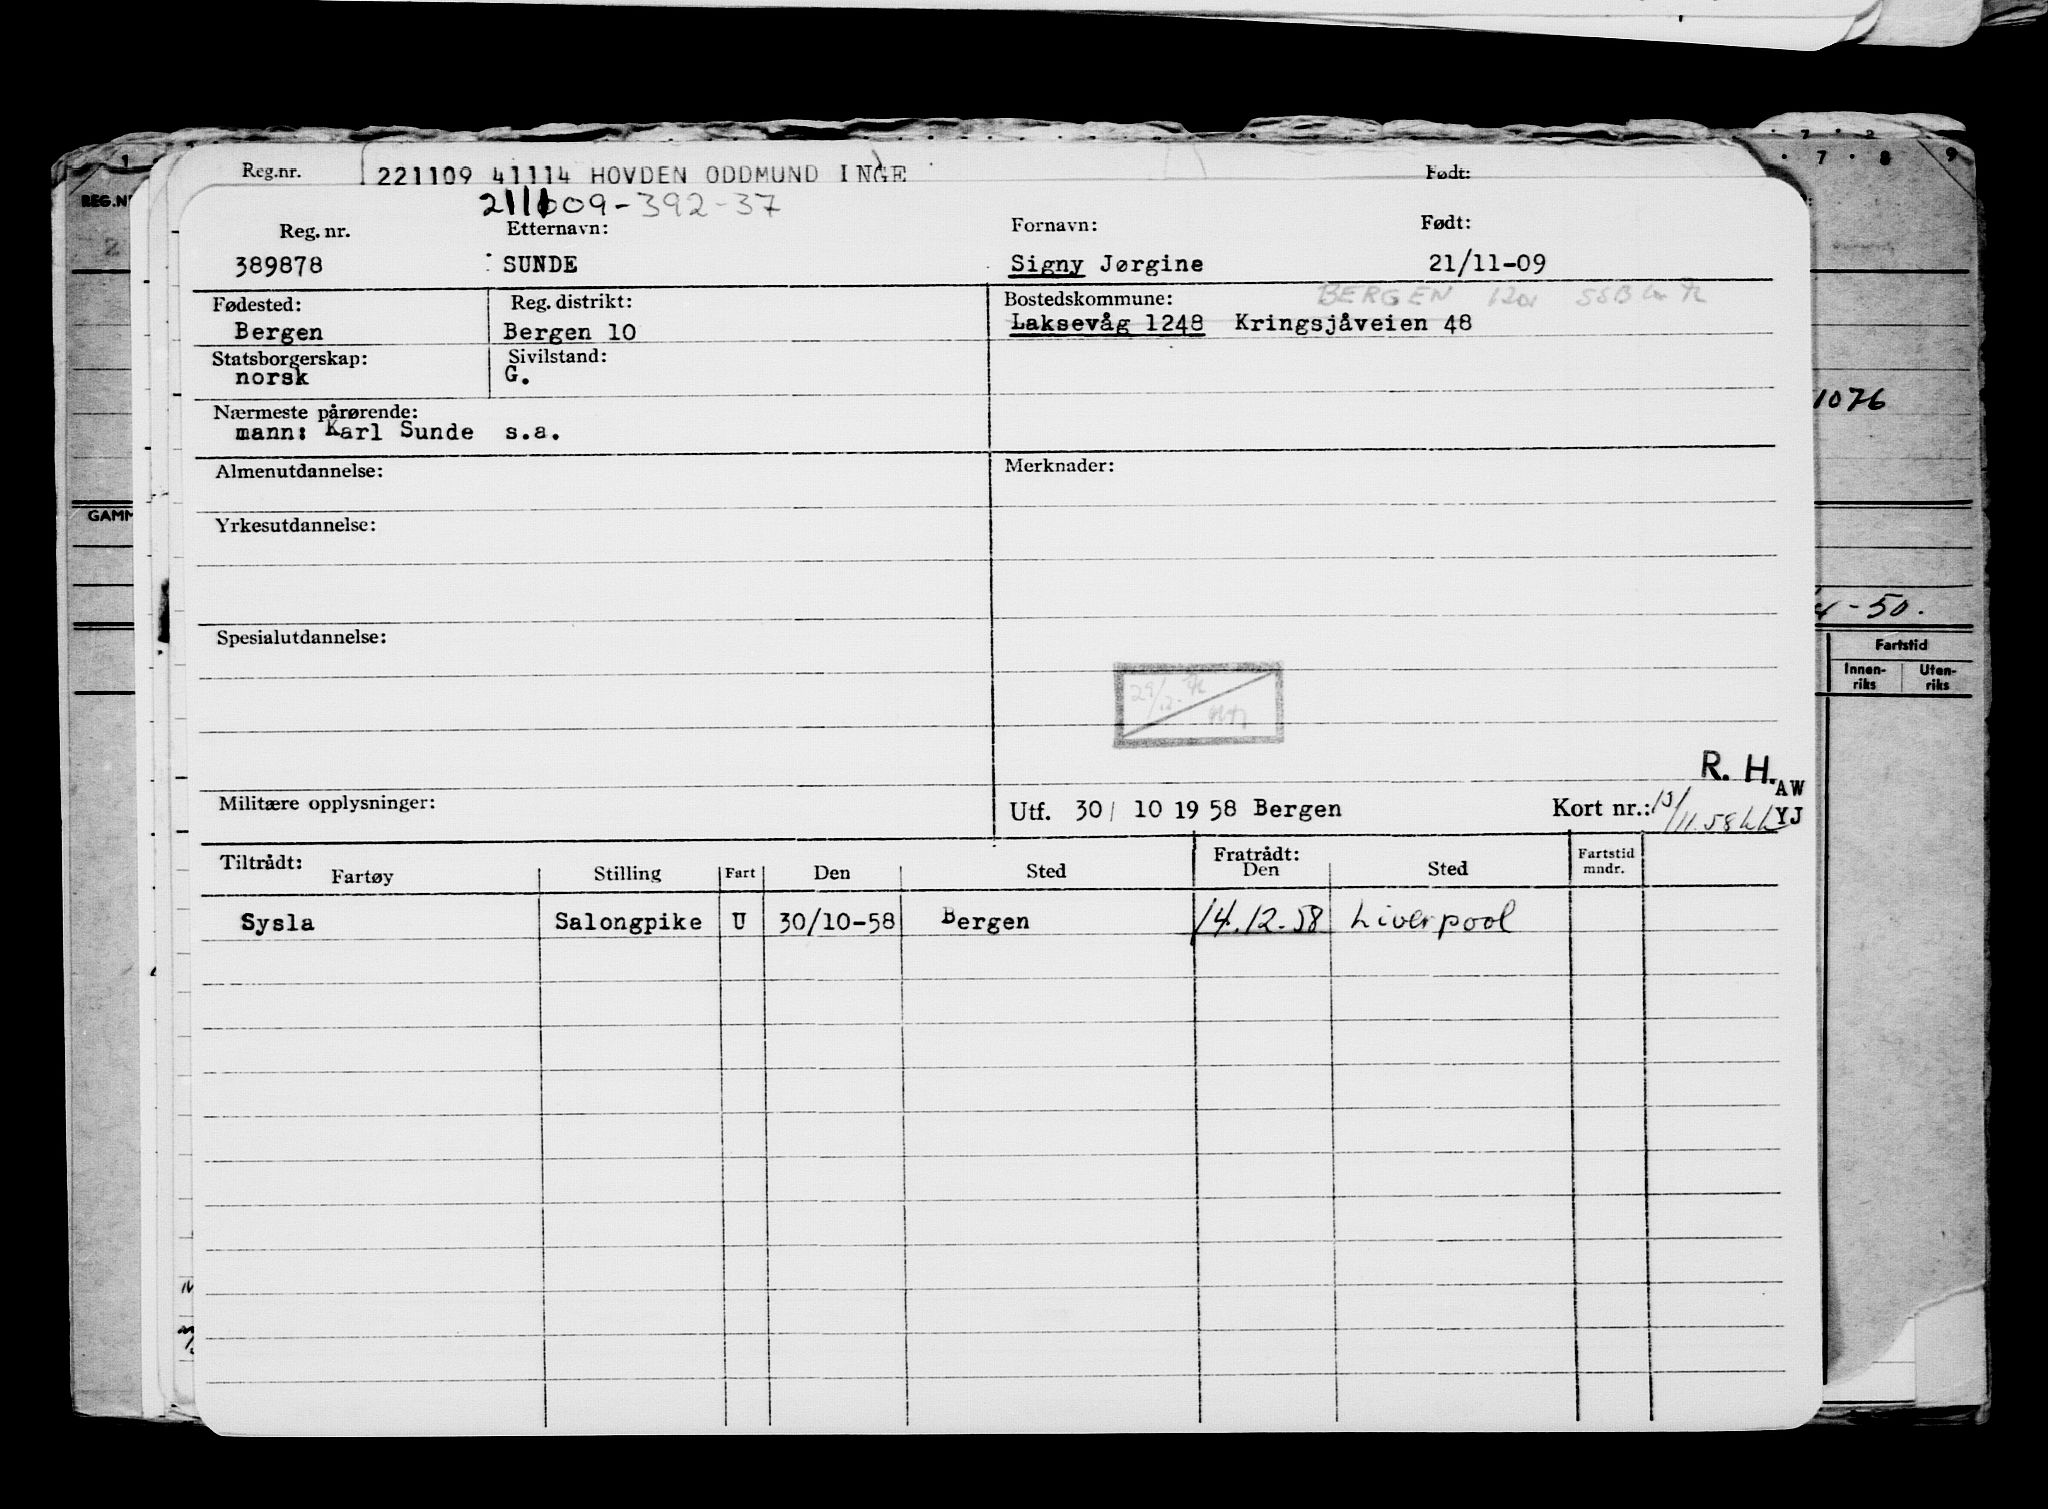 Reg.nr. 221109 41114 HOVDEN ODDMUND INGE Født:
211109-392-37
Reg. nr. Etternavn: Fornavn: Født:
389878 SUNDE Signy Jørgine 21/11-09
Fødested: Reg. distrikt: Bostedskommune: BERGEN
Bergen Bergen 10 Laksevåg 1248 Kringsjåveien 48
Statsborgerskap: Sivilstand:
norsk G.
Nærmeste pårørende:
mann: Karl Sunde s.a.
Almenutdannelse: Merknader:
Yrkesutdannelse:
Spesialutdannelse:
R. H. AW
Militære opplysninger: Utf. 30/ 10 19 58 Bergen Kort nr.: YJ
Tiltrådt: Fratrådt:
Fartøy Stilling Fart Den Sted Den Sted Fartstid mndr.
Sysla Salongpike U 30/10-58 Bergen 14.12.58 Liverpool
REG.N
GAMM
1076
-50.
Fartstid
Innen-riks Uten-riks